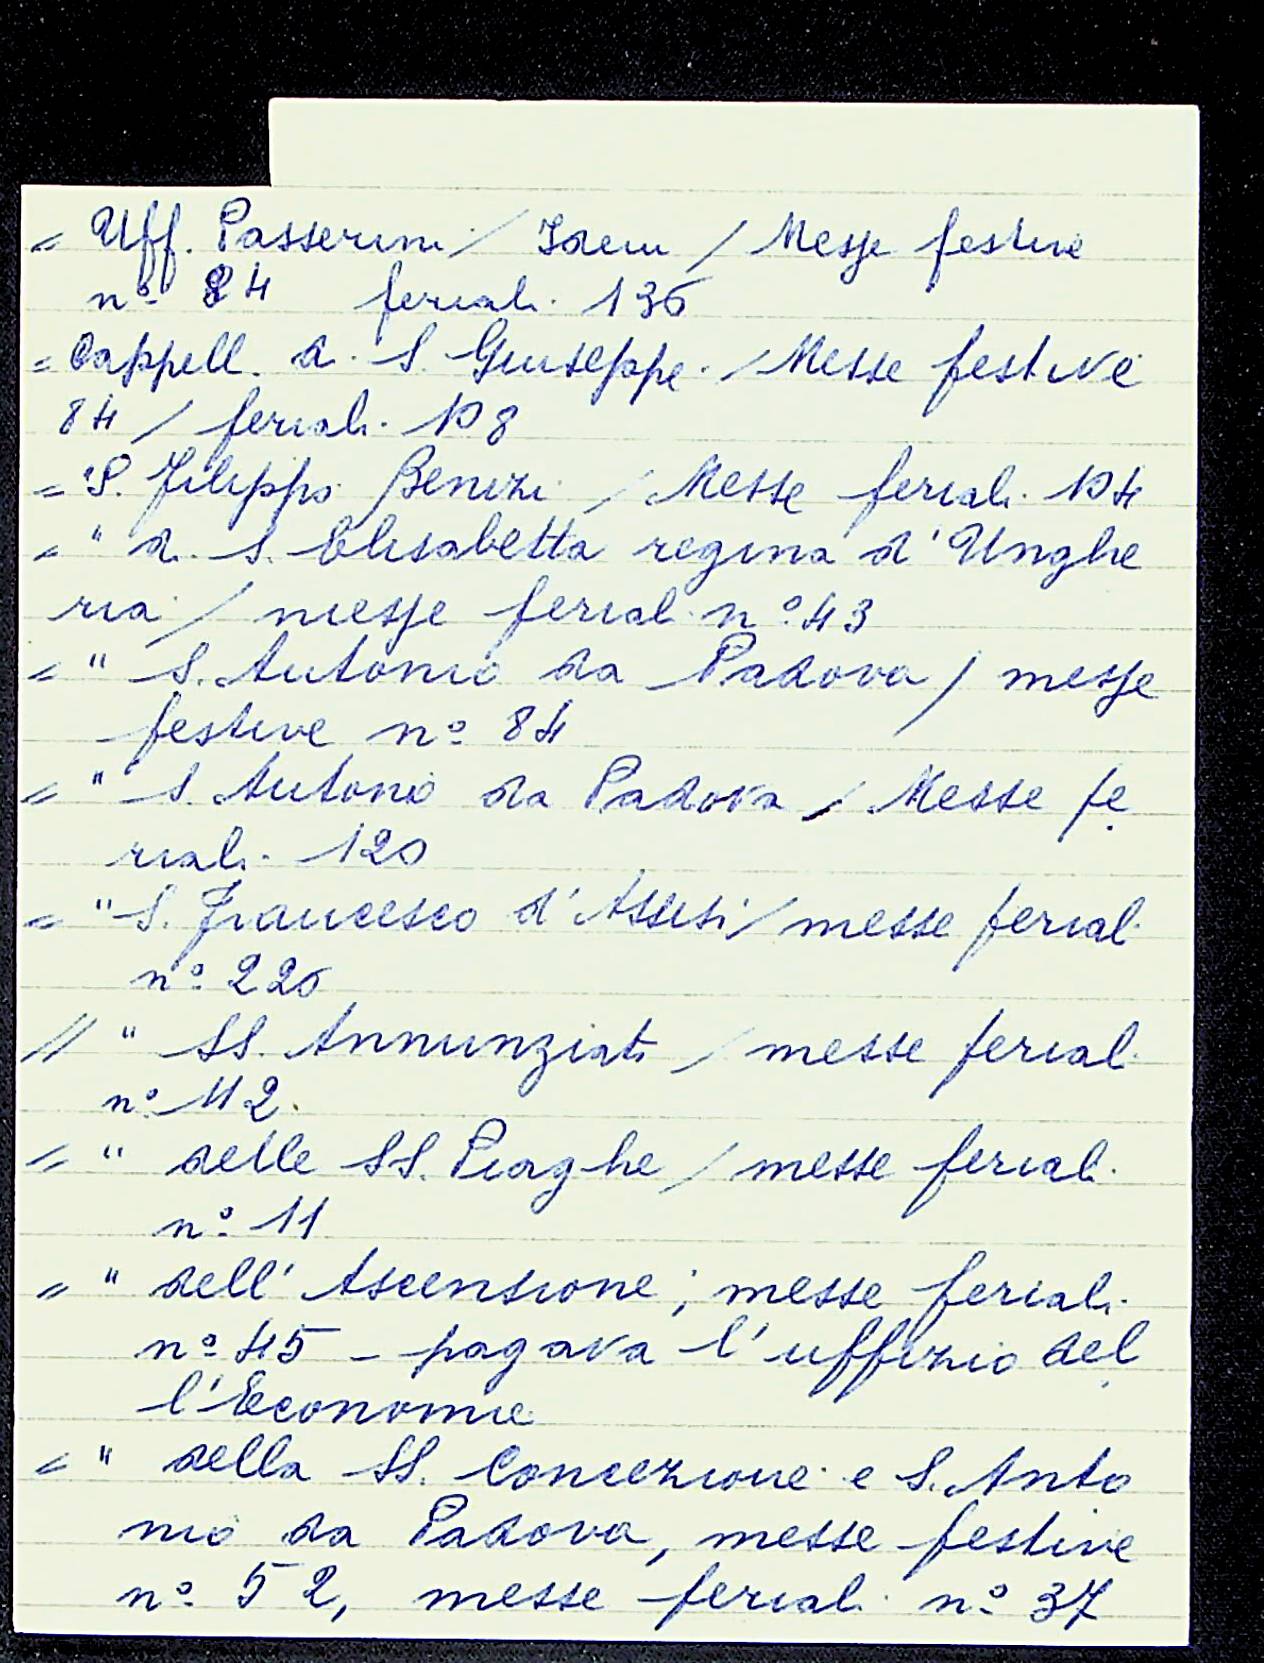 = Uff. Passerini / Idem / Messe festive
n° 84 feriali 136
= Cappell. di S. Giuseppe / Messe festive
84 / feriali 108
= S. Filippo Benizi / Messe feriali 104
= " di S. Elisabetta regina d'Unghe
ria / messe feriali n° 43
= " S. Antonio da Padova / messe
festive n° 84
= " S. Antonio da Padova / Messe fe
riali 120
= " S. Francesco d'Assisi / messe feriali
n° 220
// " SS. Annunziata / messe feriali
n° 112
= " delle SS. Piaghe / messe feriali
n° 11
= " dell'Ascensione; messe feriali
n° 45 - pagava l'uffizio del
l'Economie
= " della SS. Concezione e S. Anto
nio da Padova, messe festive
n° 52, messe feriali n° 37